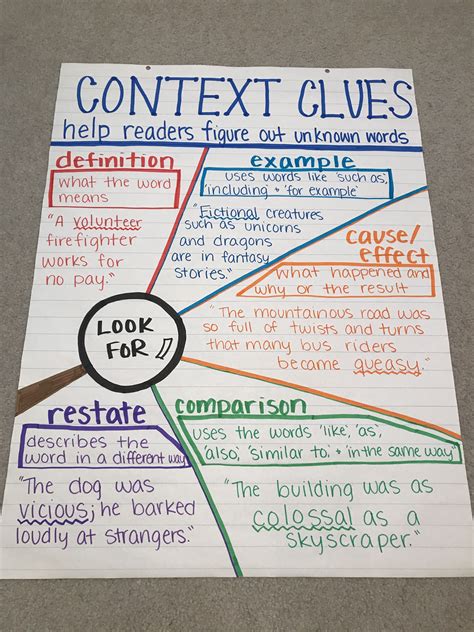 CONTEXT CLUES
help readers figure out unknown words
definition
what the word
means
"A volunteer
firefighter
works for
no pay."
example
uses words like 'such as',
'including' + 'for example'
"Fictional creatures
such as unicorns
and dragons
are in fantasy
stories."
cause/
effect
What happened and
why or the result
"The mountainous road was
so full of twists and turns
that many bus riders
became queasy."
LOOK
FOR
restate
describes the
word in a different way
"The dog was
vicious; he barked
loudly at strangers."
comparison
uses the words 'like', 'as',
'also', 'similar to', + 'in the same way'
"The building was as
colossal as a
skyscraper."